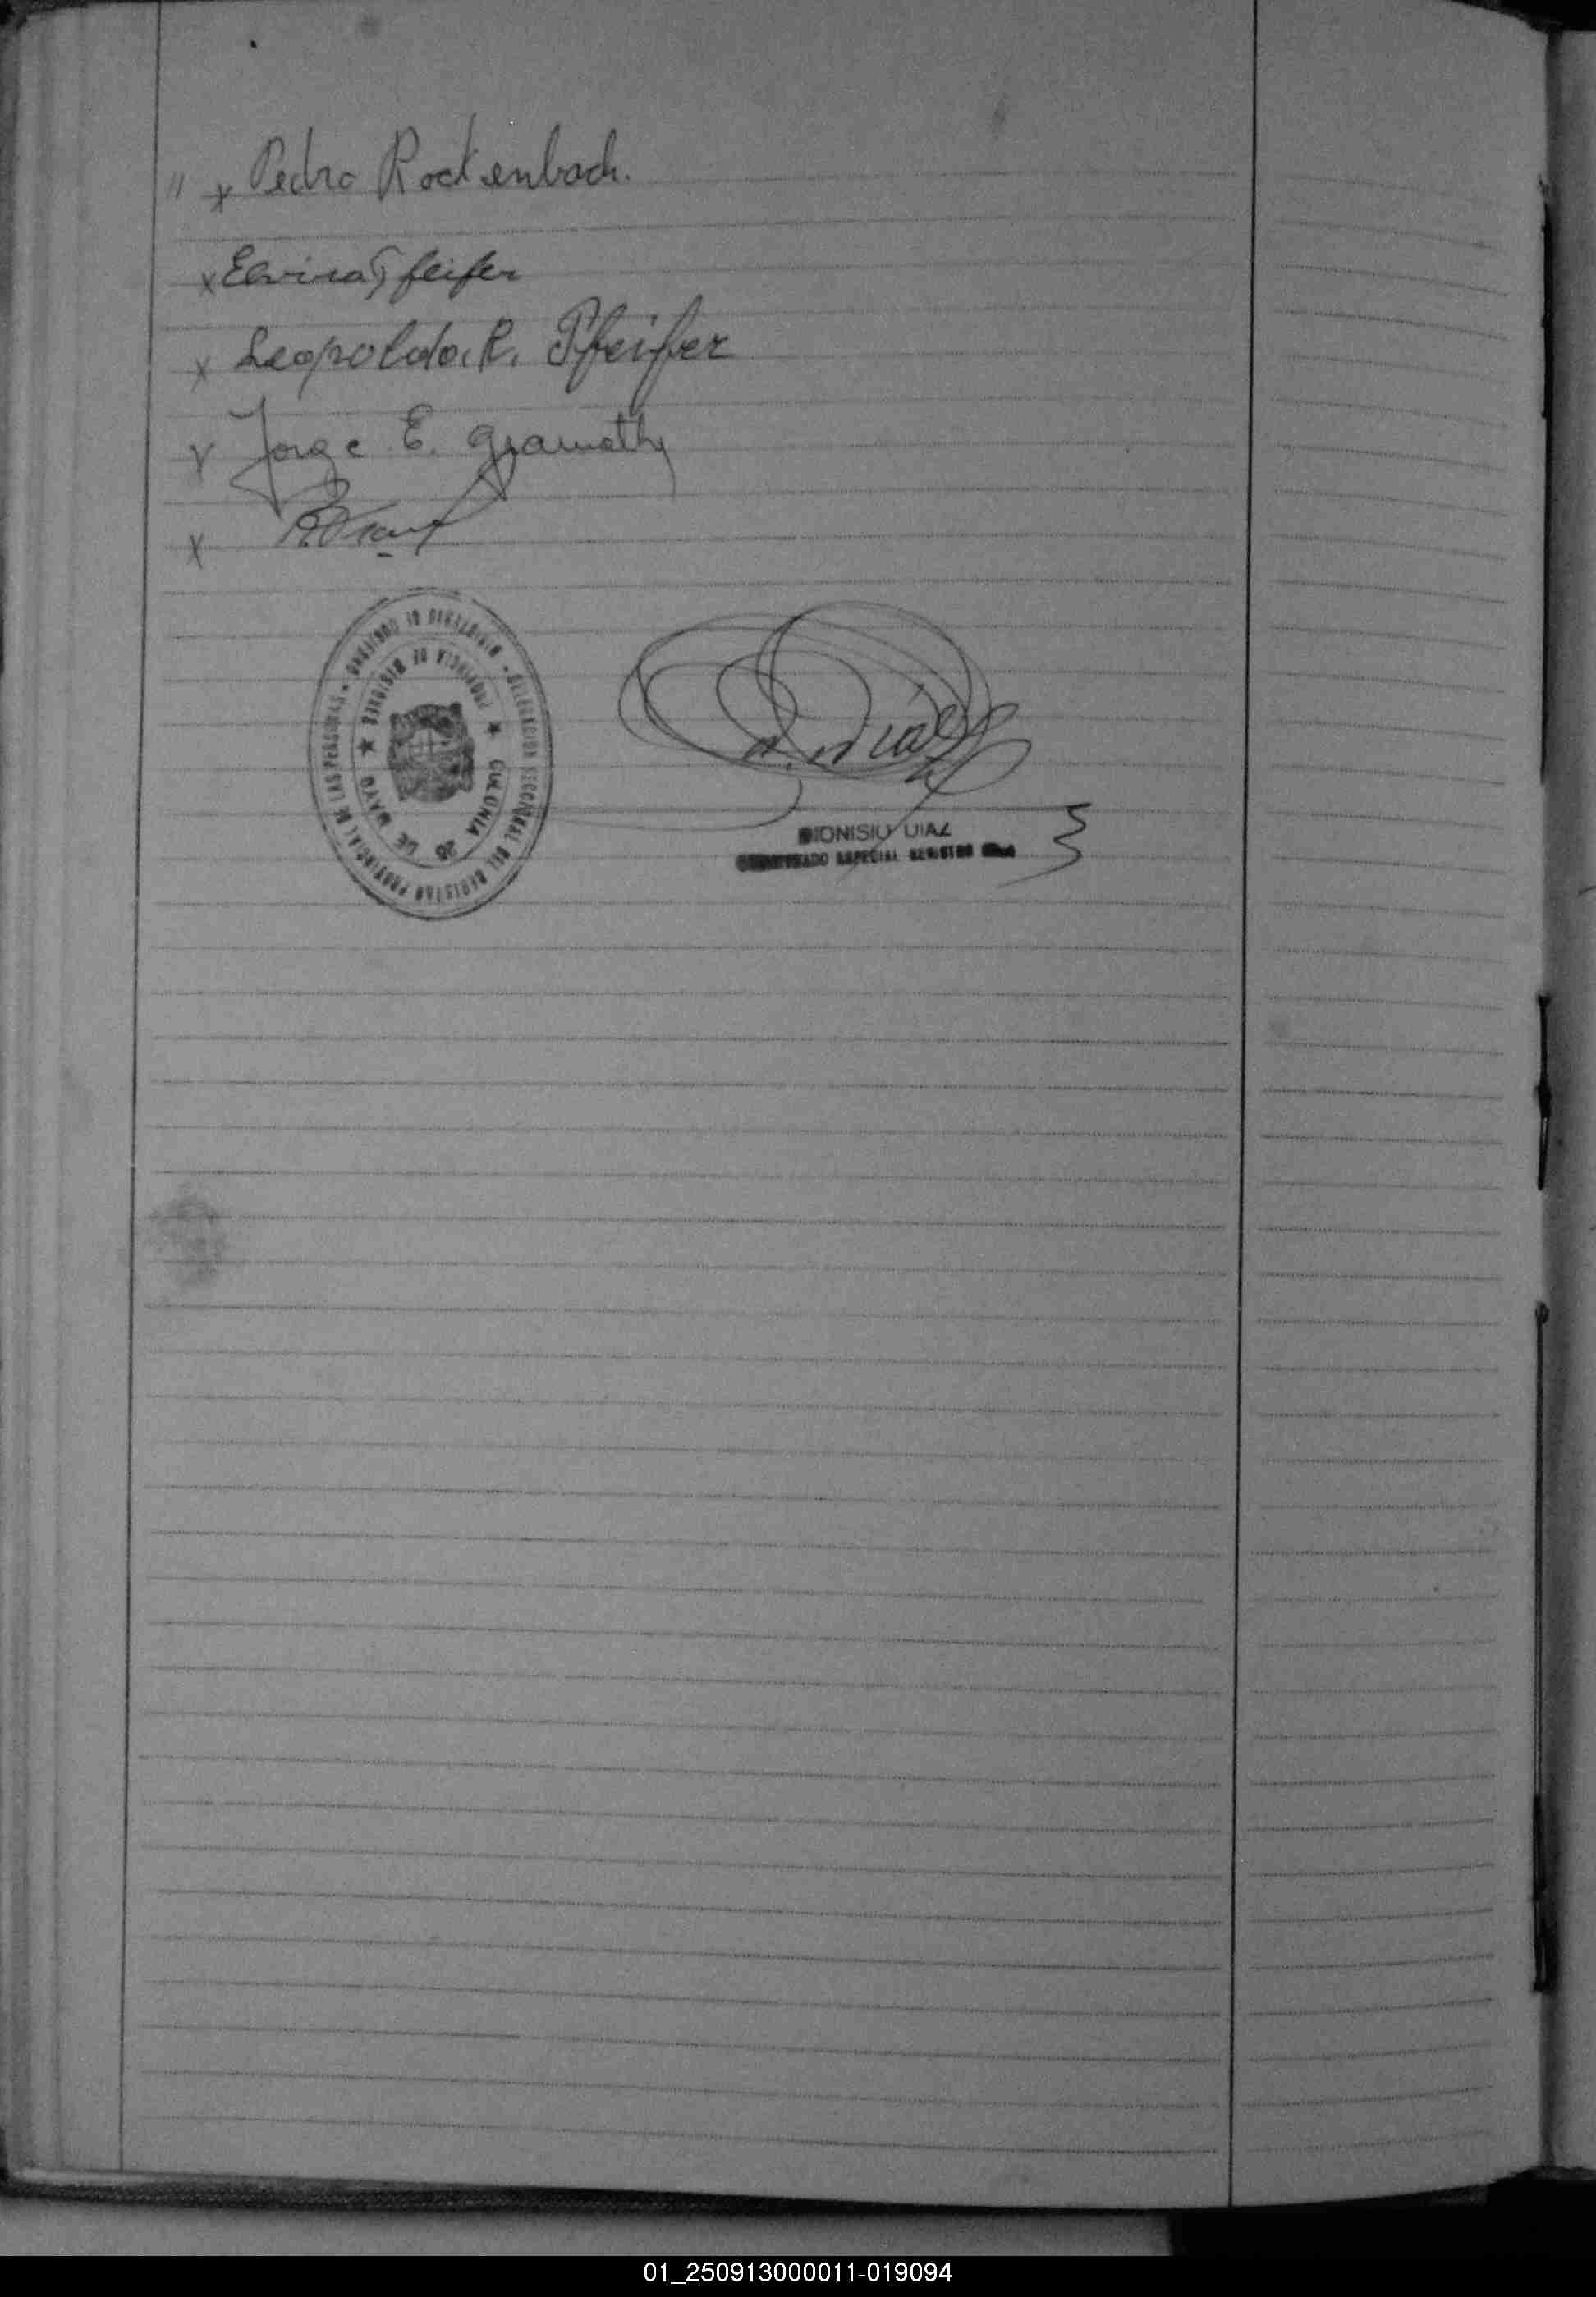 " x Pedro Rockenbach.
x Elvira Pfeifer
x Leopoldo. R. Pfeifer
x Jorge E. Gramothy
x
MINISTERIO DE GOBIERNO • DELEGACION SECCIONAL DEL REGISTRO PROVINCIAL DE LAS PERSONAS •
PROVINCIA DE MISIONES
★ COLONIA 25 DE MAYO ★
D. Díaz
DIONISIO DIAZ
ESPECIAL REGISTRO
01_250913000011-019094